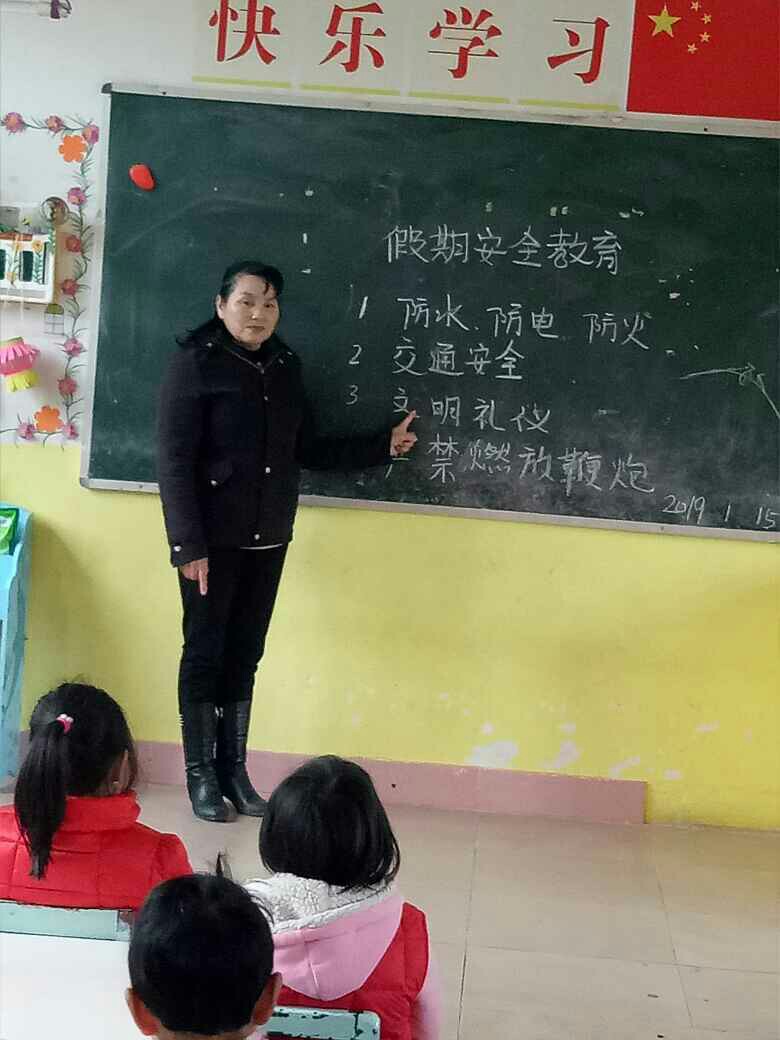 快乐学习
假期安全教育
1 防水、防电 防火
2 交通安全
3 文明礼仪
严禁燃放鞭炮
2019 1 15